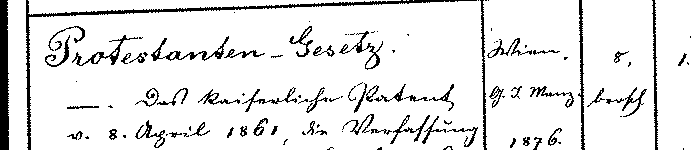 Protestanten-Gesetz. Wien. 8. 1.
—. Das kaiserliche Patent G. J. Manz. brosch
v. 8. April 1861, die Verfassung 1876.